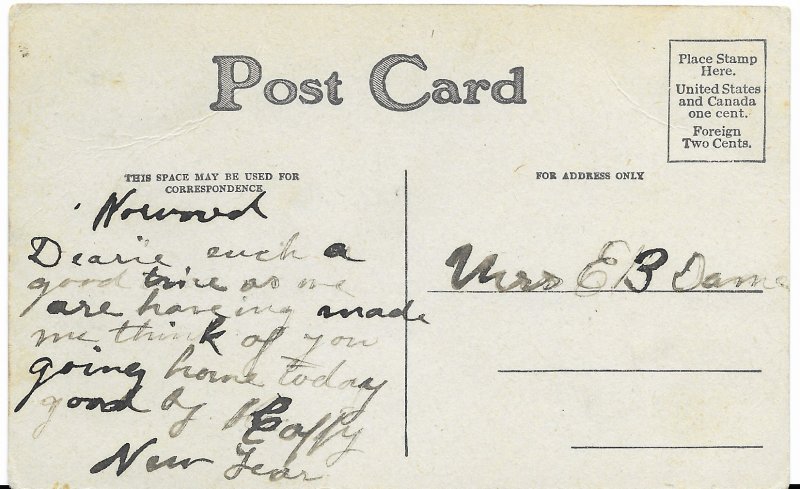 Post Card
Place Stamp
Here.
United States
and Canada
one cent.
Foreign
Two Cents.
THIS SPACE MAY BE USED FOR
CORRESPONDENCE
FOR ADDRESS ONLY
Norwood
Dearie such a
good time as we
are haveing made
me think of you
going home today
good by Happy
New Year
Mrs E B Dame